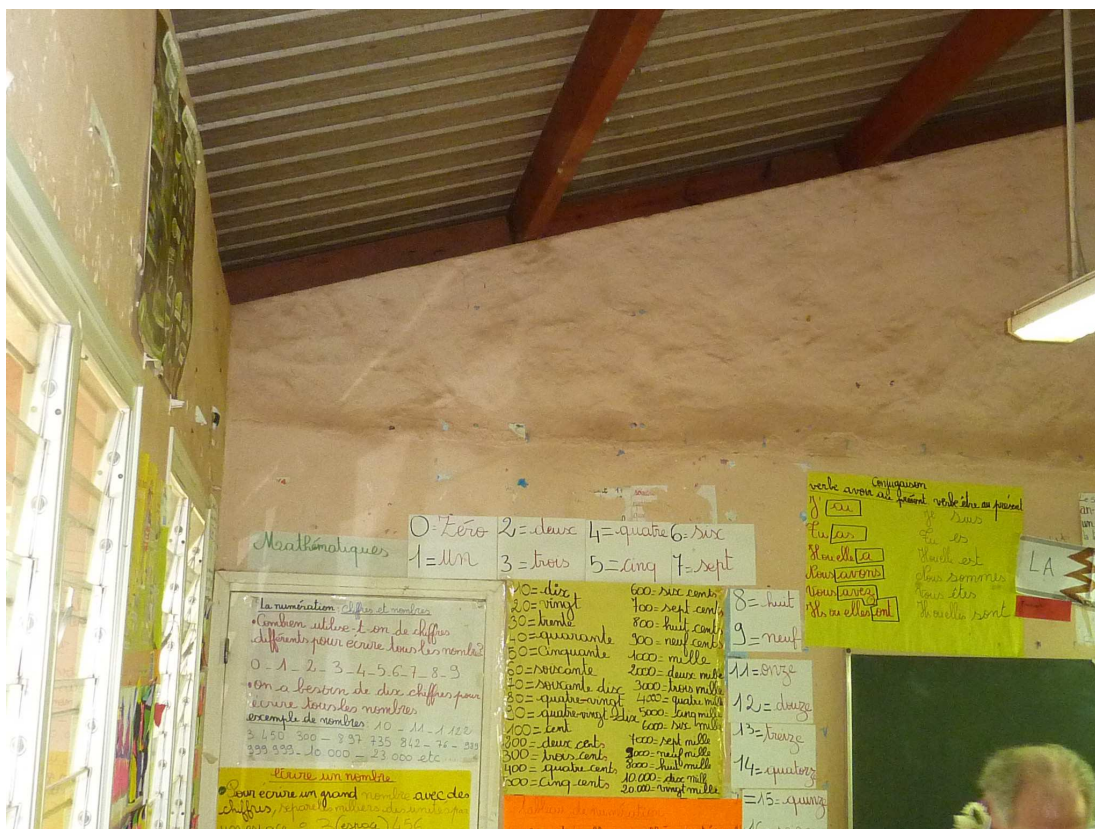 Mathématiques
0=Zéro
1=Un
2=deux
3=trois
4=quatre
5=cinq
6=six
7=sept
8=huit
9=neuf
11=onze
12=douze
13=treize
14=quatorz
=15=quinz
La numération: chiffres et nombres
• Combien utilise-t-on de chiffres
différents pour écrire tous les nombres?
0-1-2-3-4-5-6-7-8-9
• on a besoin de dix chiffres pour
écrire tous les nombres
exemple de nombres: 10 - 11 - 1 122
3 450 300 - 897 735 842 - 76 - 989
999.999 - 10 000 - 23 000 etc
Ecrire un nombre
• Pour ecrire un grand nombre avec des
chiffres,
10=dix
20=vingt
30=trente
40=quarante
50=Cinquante
60=soixante
70=soixante dix
80=quatre-vingt
90=quatre-vingt-dix
100=cent
200=deux cents
300=trois cents
400=quatre cents
500=Cinq cents
600=six cents
700=sept cents
800=huit cents
900=neuf cents
1000=mille
2000=deux mille
3000=trois mille
4000=quatre mille
5000=cinq mille
6000=six mille
7000=sept mille
9000=neuf mille
8000=huit mille
10.000=dix mille
20.000=vingt mille
Tableau de numération
Conjugaison
verbe avoir au présent verbe être au présent
J' ai Je suis
Tu as Tu es
Il ou elle a Il ou elle est
Nous avons Nous sommes
Vous avez Vous êtes
Ils ou elles ont Ils ou elles sont
LA